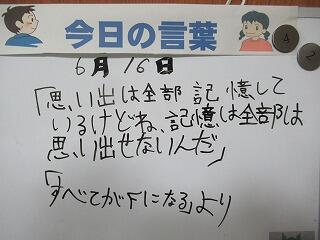 今日の言葉
6月16日
「思い出は全部記憶して
いるけどね、記憶は全部は
思い出せないんだ」
「すべてがFになる」より
4
2